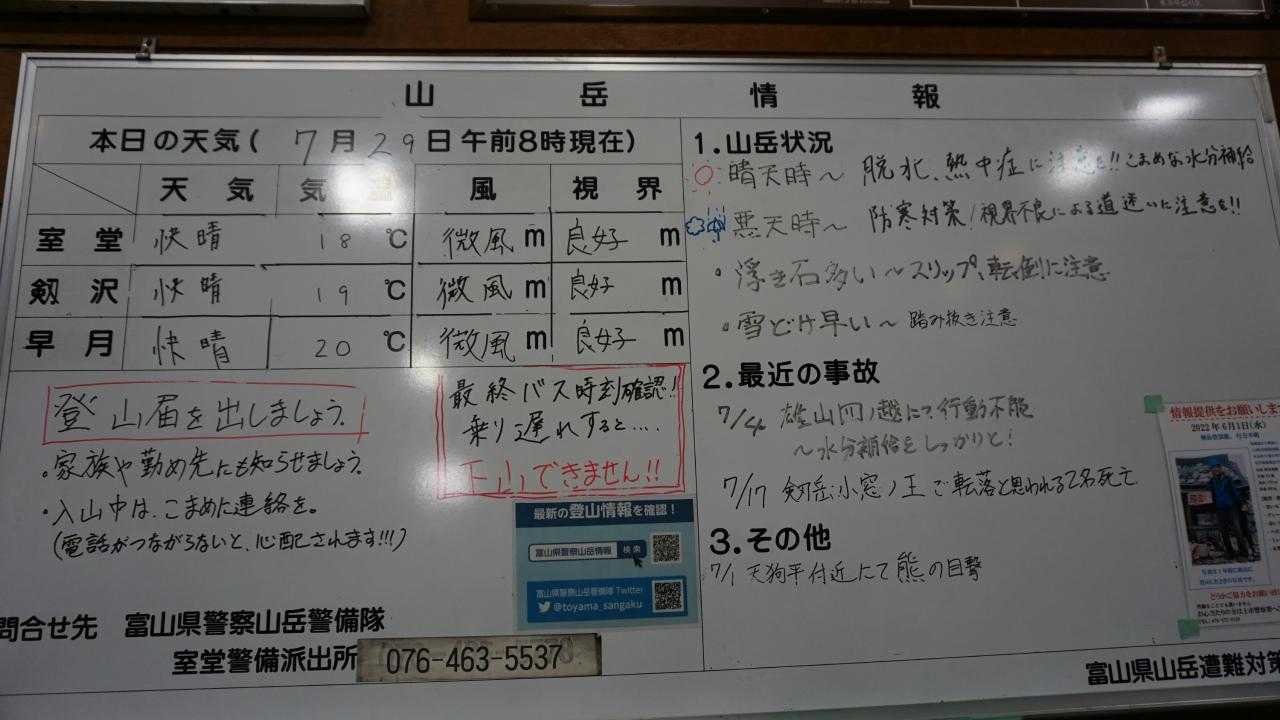 山岳情報
本日の天気( 7月29日午前8時現在)
天気 気温 風 視界
室堂 快晴 18 ℃ 微風 m 良好 m
剱沢 快晴 19 ℃ 微風 m 良好 m
早月 快晴 20 ℃ 微風 m 良好 m
登山届を出しましょう.
・家族や勤め先にも知らせましょう.
・入山中は、こまめに連絡を。
(電話がつながらないと、心配されます!!!)
最終バス時刻確認!!
乗り遅れすると....
下山できません!!
最新の登山情報を確認!
富山県警察山岳情報 検索
富山県警察山岳警備隊 Twitter
@toyama_sangaku
問合せ先 富山県警察山岳警備隊
室堂警備派出所 076-463-5537
1.山岳状況
晴天時〜 脱水、熱中症に注意を!!こまめな水分補給
悪天時〜 防寒対策/視界不良による道迷いに注意を!!
・浮き石多い〜スリップ、転倒に注意
・雪どけ早い〜 踏み抜き注意
2.最近の事故
7/4 雄山四ノ越にて行動不能
〜水分補給をしっかりと!
7/17 剱岳小窓ノ王で転落と思われる2名死亡
3.その他
7/1 天狗平付近にて熊の目撃
情報提供をお願いしま
2022年6月1日(水)
富山県山岳遭難対策